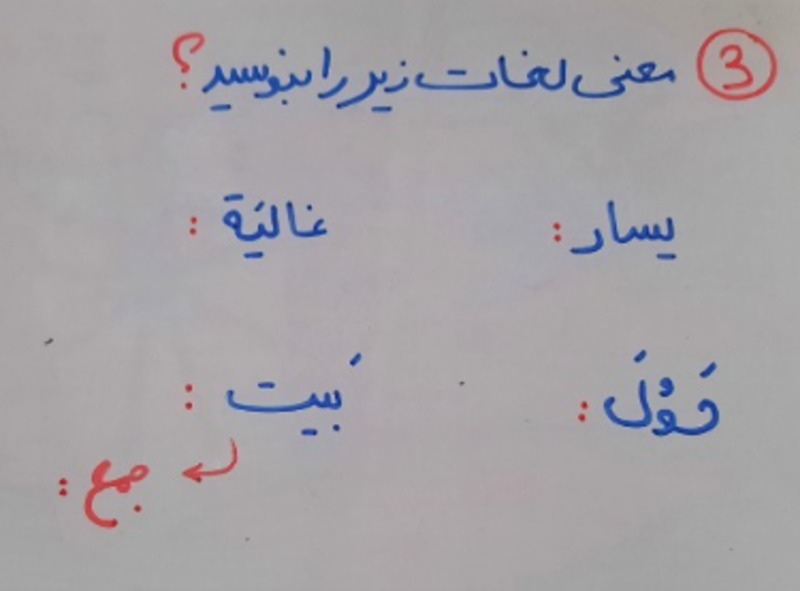 3 معنی لغات زیر را بنویسید؟
یسار : غالیَة :
حَوْلَ : بَیت :
جمع :